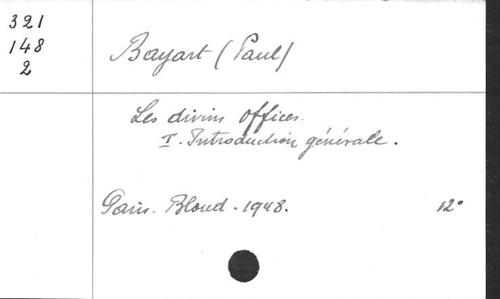 321
148
2
Bayart (Paul)
Les divins offices.
I. Introduction générale.
Paris. Bloud. 1948. 12°